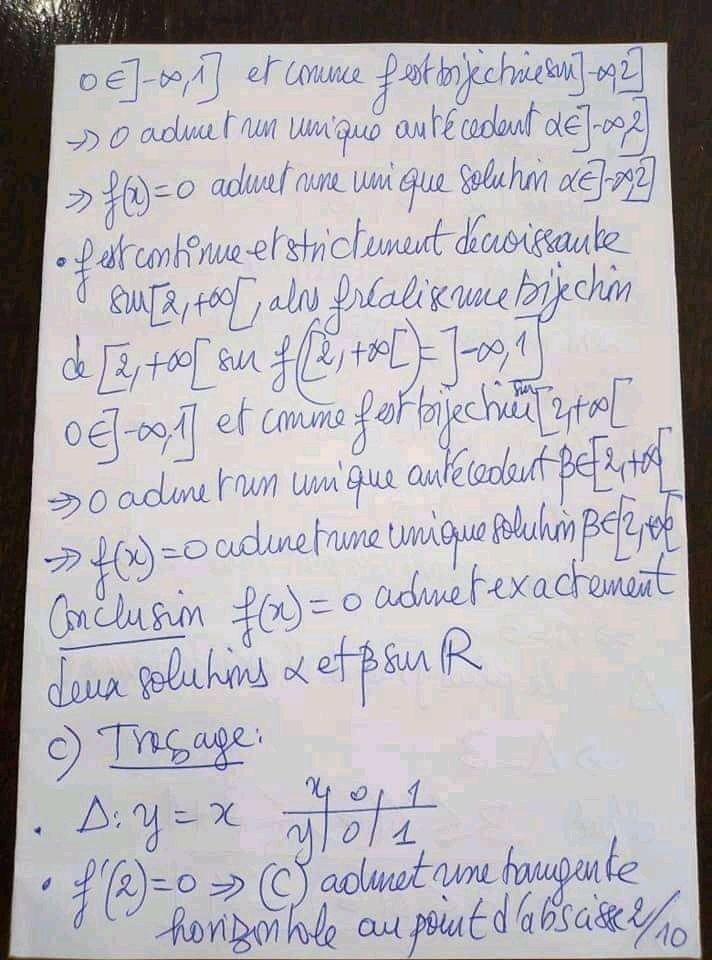 0 ∈ ]-∞, 1] et comme f est bijective sur ]-∞, 2]
⇒ 0 admet un unique antécédent α ∈ ]-∞, 2]
⇒ f(x) = 0 admet une unique solution α ∈ ]-∞, 2]
• f est continue et strictement décroissante
sur [2, +∞[, alors f réalise une bijection
de [2, +∞[ sur f([2, +∞[) = ]-∞, 1]
0 ∈ ]-∞, 1] et comme f est bijective sur [2, +∞[
⇒ 0 admet un unique antécédent β ∈ [2, +∞[
⇒ f(x) = 0 admet une unique solution β ∈ [2, +∞[
Conclusion f(x) = 0 admet exactement
deux solutions α et β sur R
c) Traçage :
• Δ : y = x x | 0 | 1
y | 0 | 1
• f'(2) = 0 ⇒ (C) admet une tangente
horizontale au point d'abscisse 2
2/10